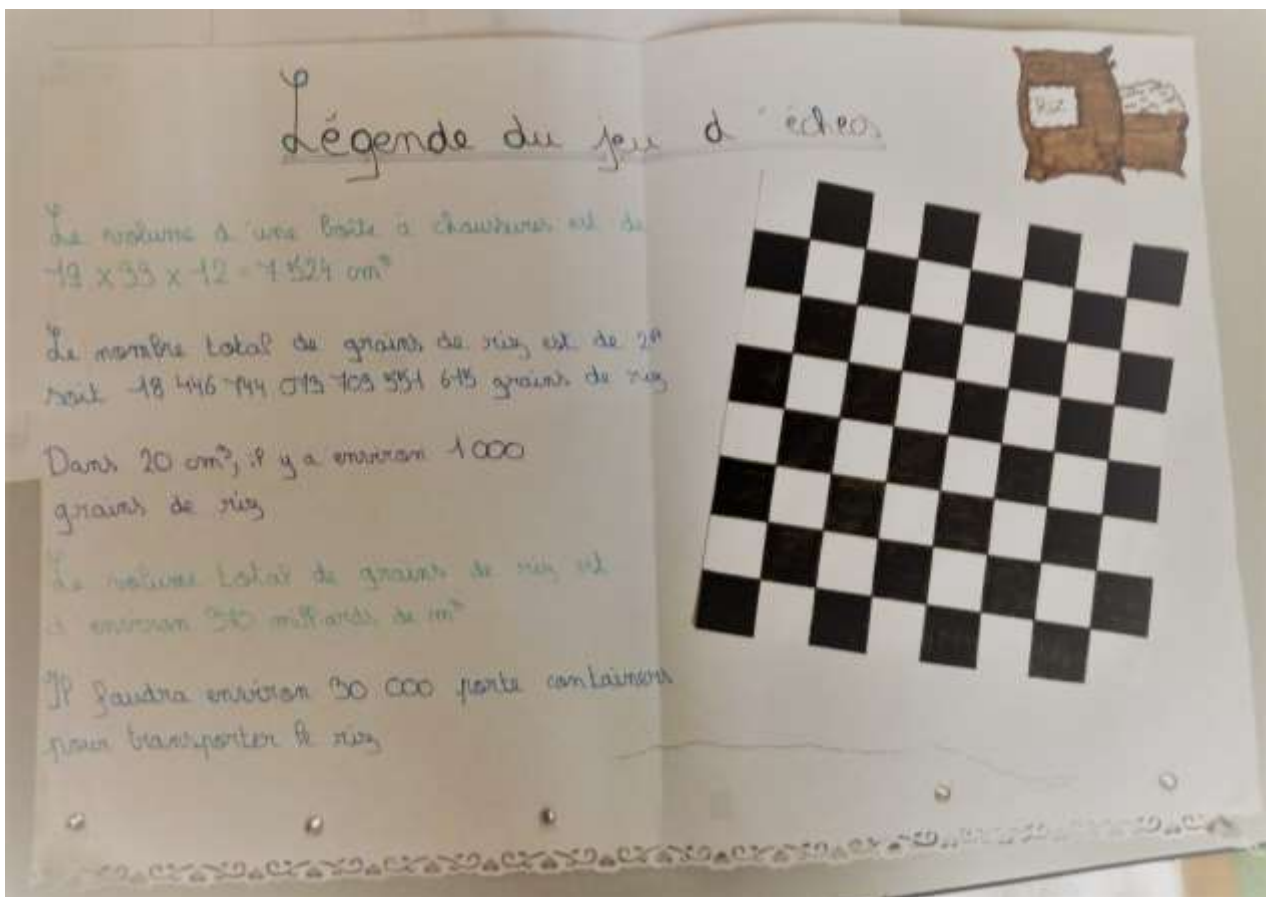 Légende du jeu d'échecs
Riz
Le volume d'une boîte à chaussures est de
19 x 33 x 12 = 7 524 cm³
Le nombre total de grains de riz est de
soit 18 446 744 073 709 551 615 grains de riz
Dans 20 cm³, il y a environ 1 000
grains de riz
Le volume total de grains de riz est
d'environ 370 milliards de m³
Il faudra environ 30 000 porte containers
pour transporter le riz